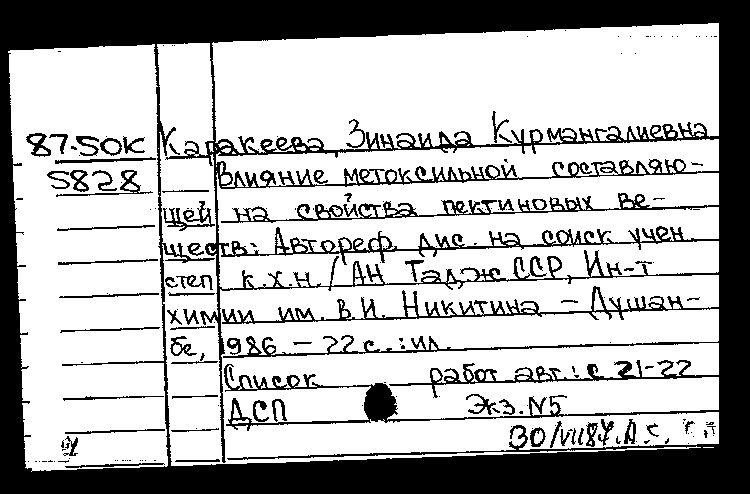 87-5OK Каракеева, Зинаида Курмангалиевна
S828 Влияние метоксильной составляю-
щей на свойства пектиновых ве-
ществ: Автореф. дис. на соиск учен
степ к.х.н. / АН ТаджССР, Ин-т
химии им. В.И. Никитина – Душан-
бе, 1986. – 22 с. : ил.
Список работ авт.: с 21-22
ДСП Экз. N5
30/VII87.